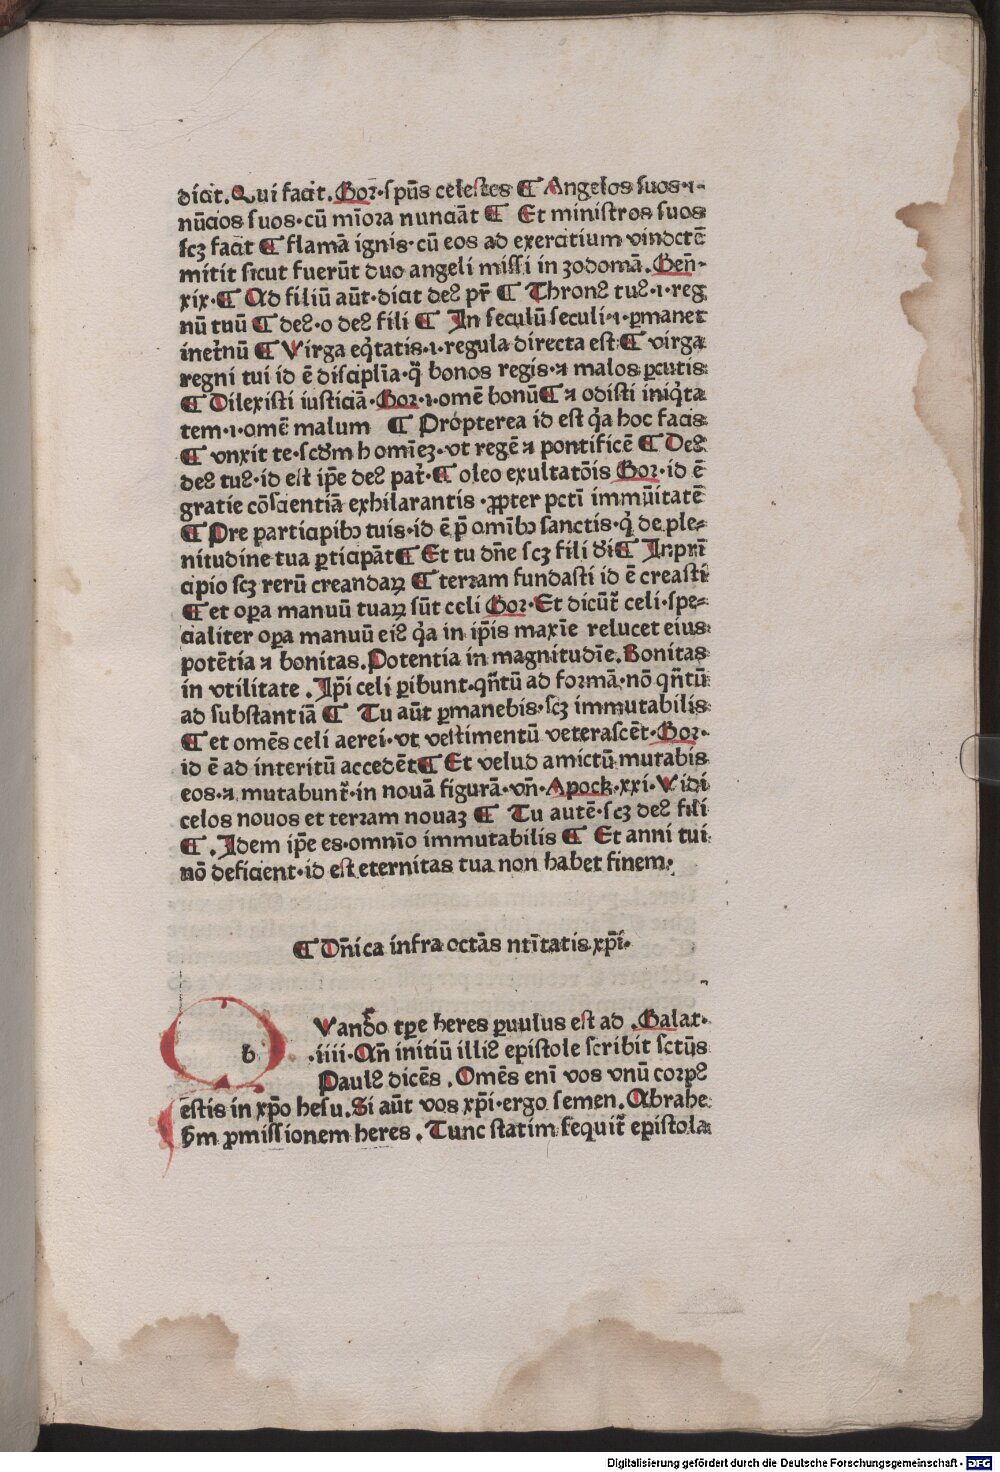 dicit. Qui facit. Gor·spūs celestes ¶ Angelos suos·i·
nūcios suos·cū mīora nunciāt ¶ Et ministros suos
scꝫ facit ¶ flamā ignis·cū eos ad exercitium vindctē
mitit sicut fuerūt duo angeli missi in zodomā. Gen̄·
xix·¶ Ad filiū aūt·dicit deꝰ pr̄ ¶ Thronꝰ tuꝰ·i·reg
nū tuū ¶ deꝰ·o deꝰ fili ¶ In seculū seculi·i·ꝑmanet
inet̄nū ¶ Virga eq̄tatis·i·regula directa est·¶ virga
regni tui id ē disciplīa·q̄ bonos regis·⁊ malos ꝑcutis
¶ Dilexisti iusticiā·Gor·i·omē bonū¶ ⁊ odisti iniq̄ta
tem·i·omē malum ¶ Propterea id est q̄a hoc facis
¶ vnxit te·scd̄m homīeꝫ·vt regē ⁊ pontificē ¶ Deꝰ
deꝰ tuꝰ·id est ip̄e deꝰ pat̄·¶ oleo exultatōis Gor·id ē
gratie cōscientiā exhilarantis·ꝓpter pctī immūitatē
¶ Pre participibꝰ tuis·id ē p̄ omībꝰ sanctis·q̄ de ple-
nitudine tua ꝑticipāt¶ Et tu dn̄e scꝫ fili di¶ Inprī
cipio scꝫ rerū creandaꝝ ¶ terram fundasti id ē creasti
¶ et oꝑa manuū tuaꝝ sūt celi Gor·Et dicūt̄ celi·spe-
cialiter oꝑa manuū eiꝰ q̄a in ip̄is maxīe relucet eius
potētia ⁊ bonitas. Potentia in magnitudīe. Bonitas
in vtilitate. Ip̄i celi ꝑibunt·qn̄tū ad formā·nō qn̄tū
ad substantiā ¶ Tu aūt ꝑmanebis·scꝫ immutabilis
¶ et omēs celi aerei·vt vestimentū veterascēt·Gor·
id ē ad interitū accedēt¶ Et velud amictū mutabis
eos·⁊ mutabunt̄·in nouā figurā·vn̄·Apock·xxi·Vidi
celos nouos et terram nouaꝫ ¶ Tu autē·scꝫ deꝰ fili
¶. Idem ip̄e es·omnīo immutabilis ¶ Et anni tui
nō deficient·id est eternitas tua non habet finem·
¶ Dn̄ica infra octās ntītatis xp̄i·
Vando tꝑe heres ꝑuulus est ad. Galat·
b
.iiii·An̄ initiū illiꝰ epistole scribit sctūs
Paulꝰ dicēs. Omēs enī vos vnū corpꝰ
estis in xp̄o hesu. Si aūt vos xp̄i·ergo semen. Abrahe
s̄m ꝓmissionem heres. Tunc statim sequit̄ epistola
Digitalisierung gefördert durch die Deutsche Forschungsgemeinschaft - DFG